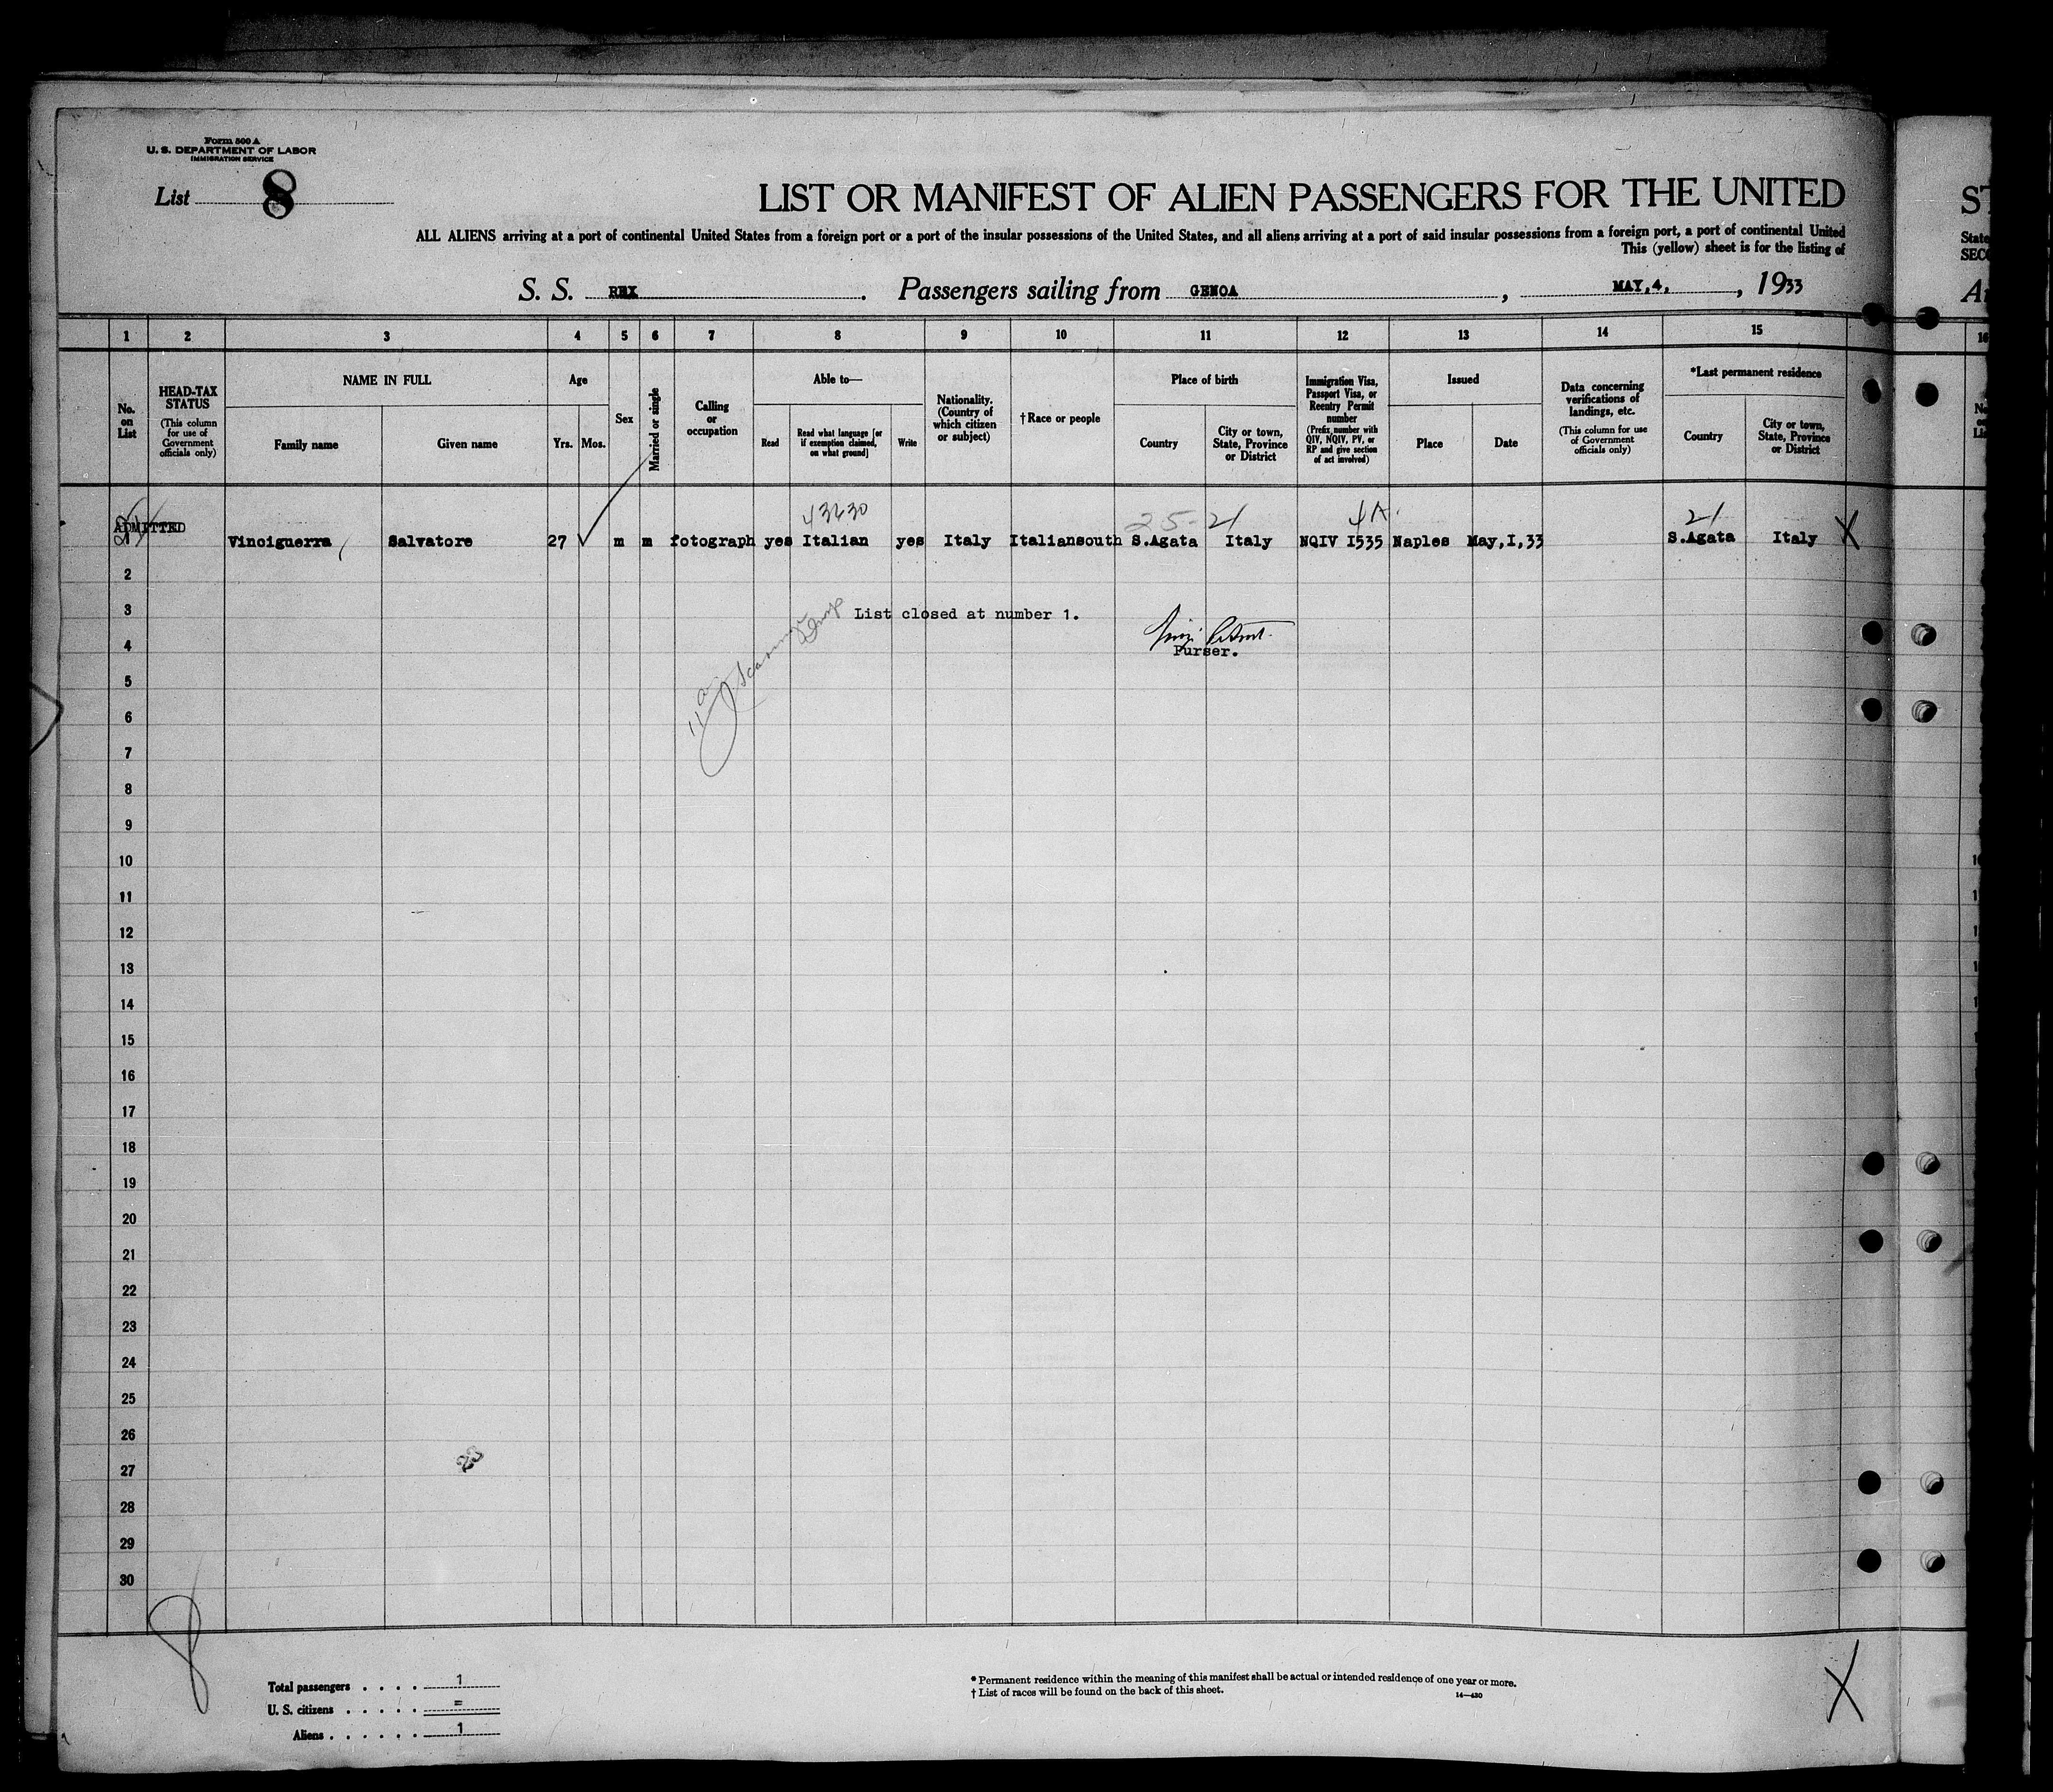 Form 500 A
U. S. DEPARTMENT OF LABOR
IMMIGRATION SERVICE
List 8
LIST OR MANIFEST OF ALIEN PASSENGERS FOR THE UNITED
ALL ALIENS arriving at a port of continental United States from a foreign port or a port of the insular possessions of the United States, and all aliens arriving at a port of said insular possessions from a foreign port, a port of continental United
This (yellow) sheet is for the listing of
S. S. REX . Passengers sailing from GENOA , MAY,4, , 1933
1 2 3 4 5 6 7 8 9 10 11 12 13 14 15
No. on List
HEAD-TAX STATUS
(This column for use of Government officials only)
NAME IN FULL
Family name Given name
Age
Yrs. Mos.
Sex
Married or single
Calling or occupation
Able to—
Read
Read what language [or if exemption claimed, on what ground]
Write
Nationality. (Country of which citizen or subject)
†Race or people
Place of birth
Country
City or town, State, Province or District
Immigration Visa, Passport Visa, or Reentry Permit number
(Prefix number with QIV, NQIV, PV, or RP and give section of act involved)
Issued
Place Date
Data concerning verifications of landings, etc.
(This column for use of Government officials only)
*Last permanent residence
Country
City or town, State, Province or District
43630 25-21 21
ADMITTED
Vinciguerra Salvatore 27 m m fotograph yes Italian yes Italy Italiansouth S.Agata Italy NQIV I535 Naples May,I,33 S.Agata Italy X
2
3
List closed at number 1.
4
Purser.
5
6
7
8
9
10
11
12
13
14
15
16
17
18
19
20
21
22
23
24
25
26
27
28
29
30
Total passengers . . . . 1
U. S. citizens . . . . . =
Aliens . . . . . . 1
* Permanent residence within the meaning of this manifest shall be actual or intended residence of one year or more.
† List of races will be found on the back of this sheet.
14—430
X